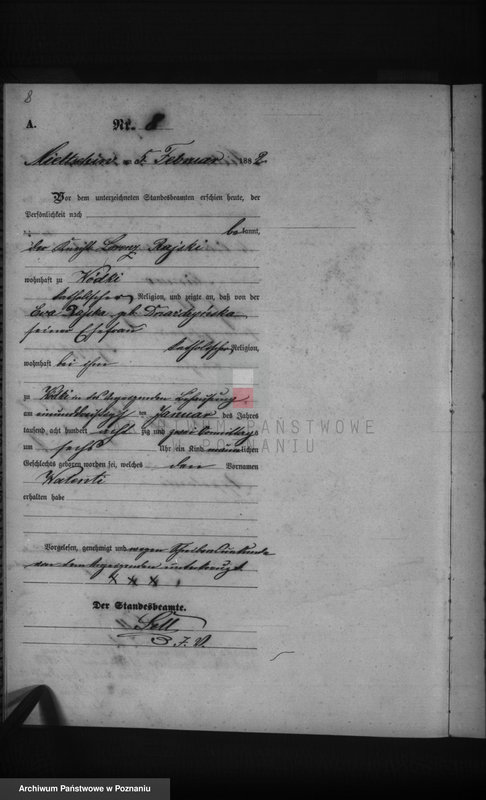 8
A. Nr. 8
Mieltschin am 5. Februar 1882
Vor dem unterzeichneten Standesbeamten erschien heute, der
Persönlichkeit nach
bekannt,
der Knecht Lorenz Rajski
wohnhaft zu Wódki
katholischer Religion, und zeigte an, daß von der
Eva Rajska geb.
seiner Ehefrau
katholischer Religion,
wohnhaft bei ihm
zu Wódki in des Anzeigenden Behausung
am einunddreißigsten ten Januar des Jahres
tausend acht hundert achtzig und zwei Vormittags
um sechs Uhr ein Kind männlichen
Geschlechts geboren worden sei, welches den Vornamen
Walenti
erhalten habe
Vorgelesen, genehmigt und wegen Schreibensunkunde
von dem Anzeigenden unterkreuzt.
+ + +
Der Standesbeamte.
Sell
I. V.
ARCHIWUM PAŃSTWOWE
W POZNANIU
Archiwum Państwowe w Poznaniu